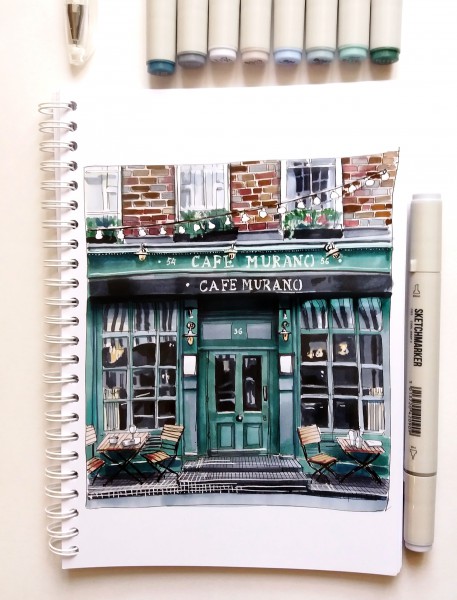 · 54 CAFÉ MURANO 36 ·
· CAFE MURANO
36
SKETCHMARKER